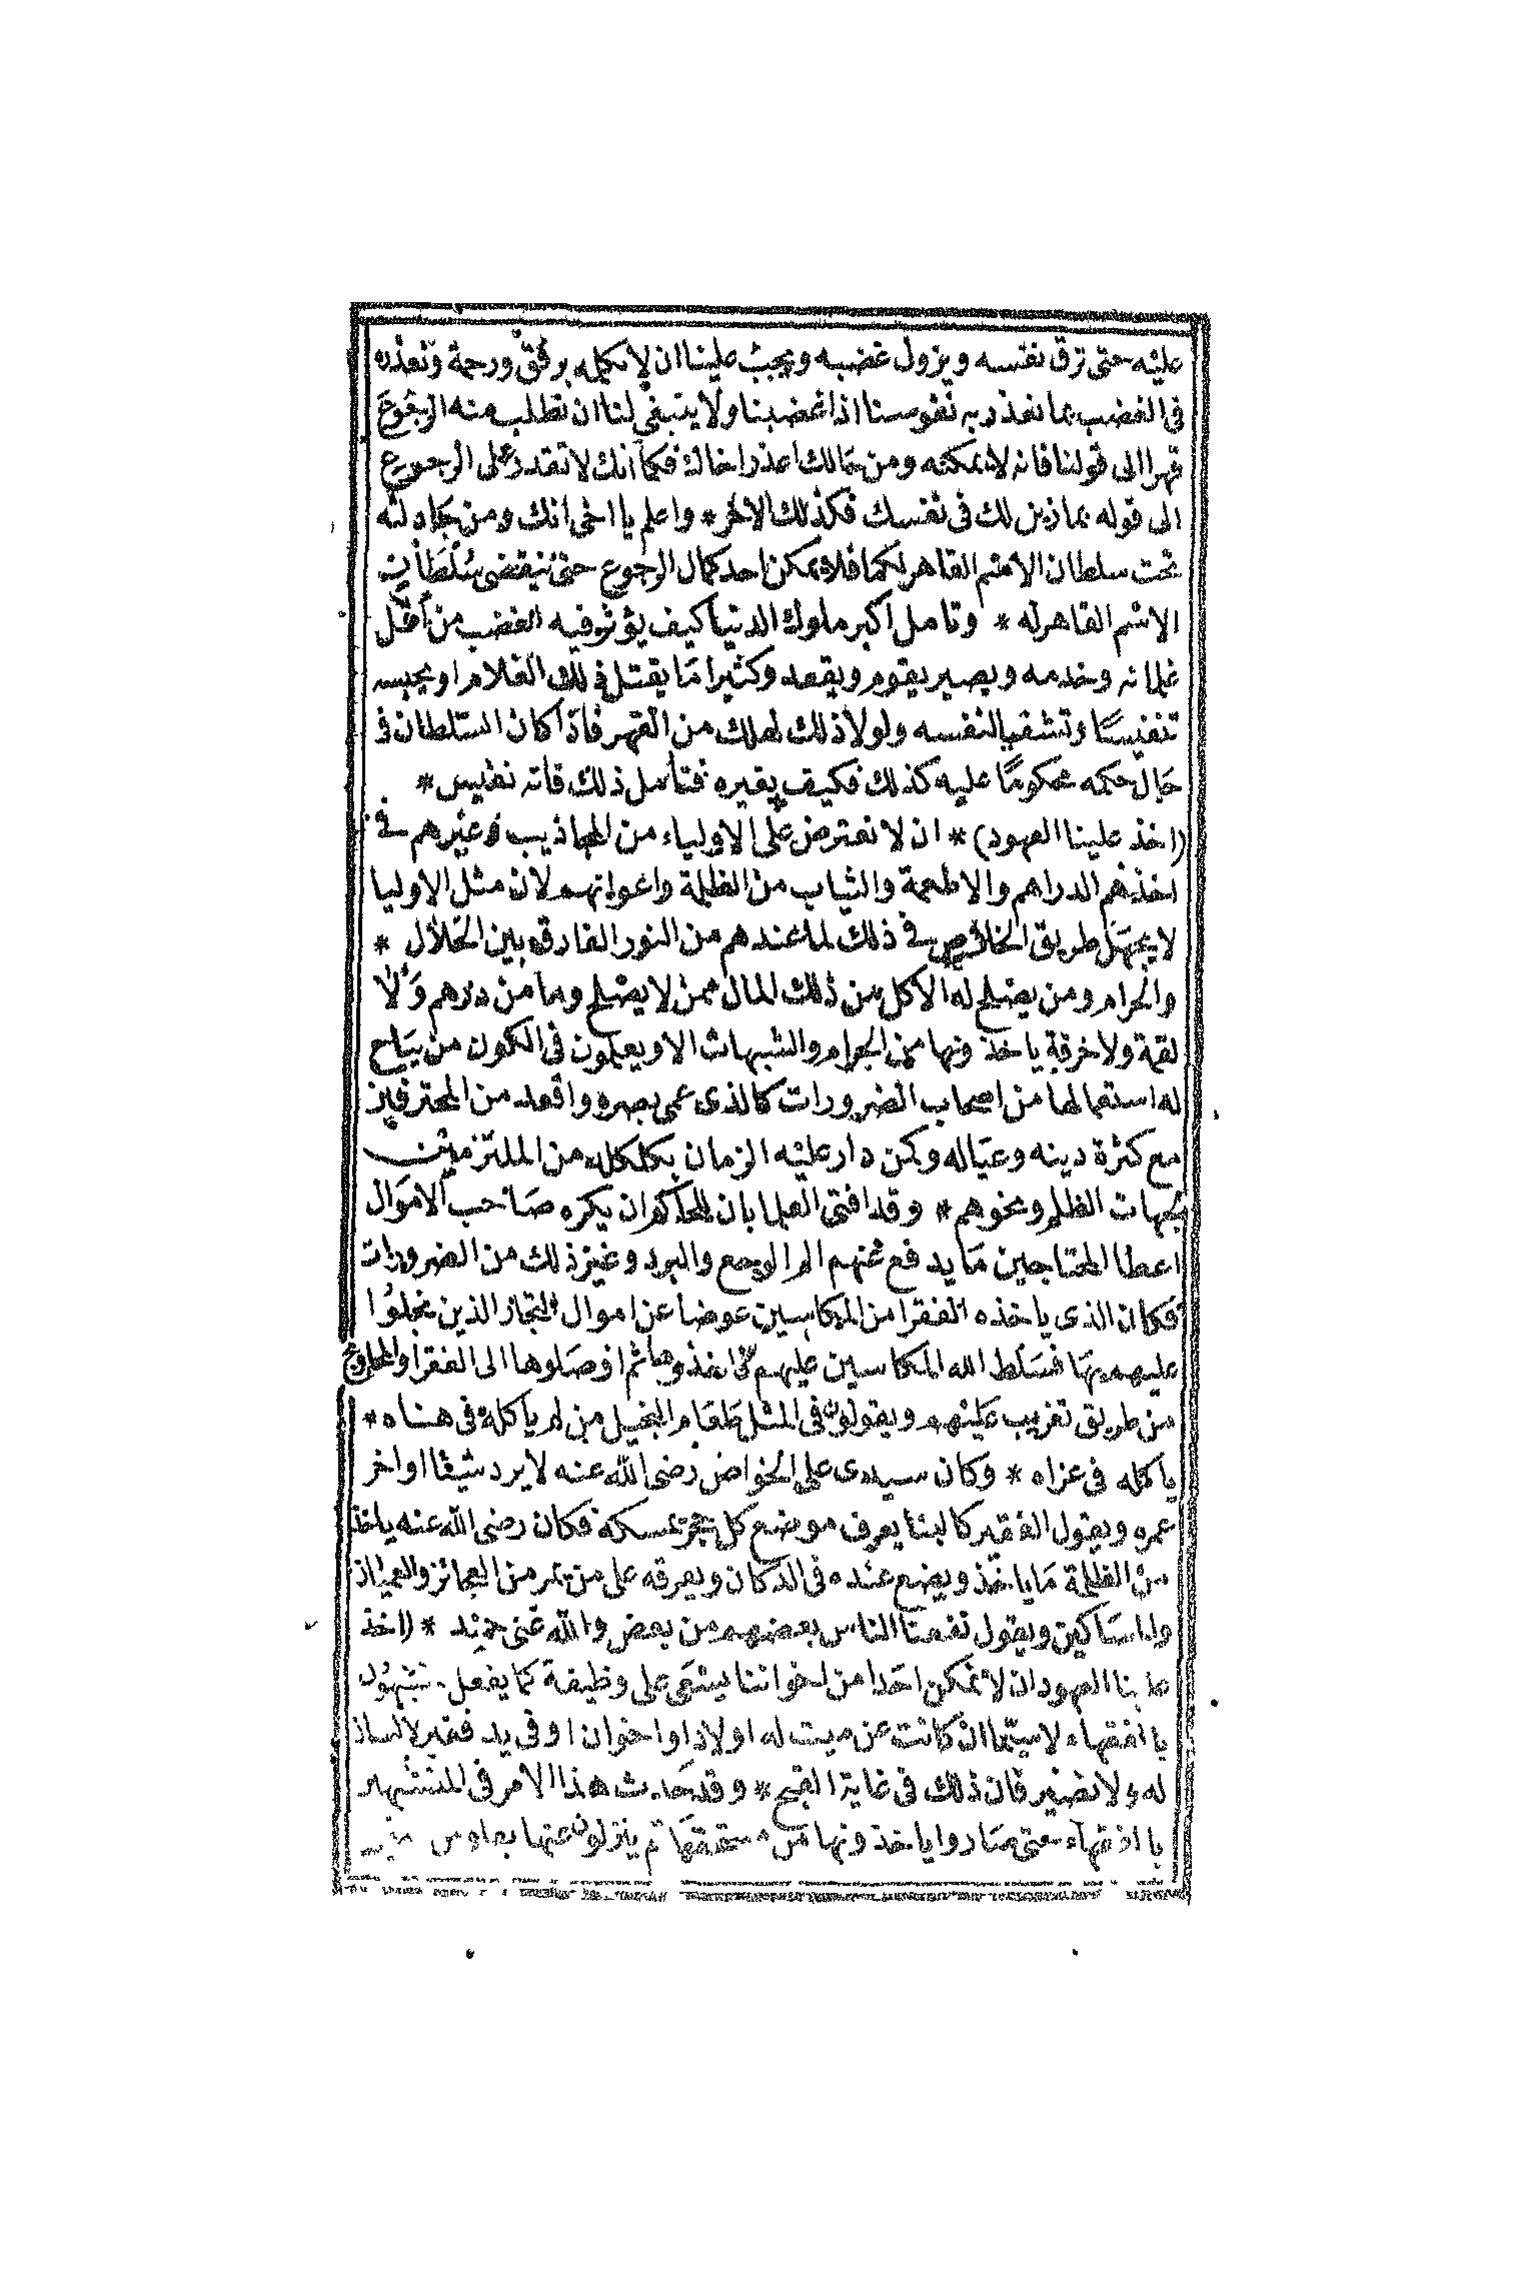 عليه حتى ترق نفسه ويزول غضبه ويجب علينا ان لا نكلمه برفق ورحمة ونعذره
فى الغضب بما نعذر به نفوسنا اذا غضبنا ولا ينبغى لنا ان نطلب منه الرجوع
قهرا الى قولنا فانه لا يمكنه ومن هنالك اعذر اخاك فكما انك لا تقدر على الرجوع
الى قوله بما زين لك فى نفسك فكذلك الاخر * واعلم يا اخى انك ومن جادلته
تحت سلطان الاسم القاهر لكما فلا يمكن احد كمال الرجوع حتى ينقضى سلطان
الاسم القاهر له * وتامل اكبر ملوك الدنيا كيف يؤثر فيه الغضب من اقل
غلمانه وخدمه ويصير يقوم ويقعد وكثيرا ما يقتل ذلك الغلام او يحبسه
تنفيسا وتشفيا لنفسه ولولا ذلك لهلك من القهر فاذا كان السلطان فى
حال حكمه محكوما عليه كذلك فكيف بغيره فتأمل ذلك فانه نفيس *
(اخذ علينا العهود) * ان لا نعترض على الاولياء من المجاذيب وغيرهم فى
اخذهم الدراهم والاطعمة والثياب من الظلمة واعوانهم لان مثل الاوليا
لا يجهل طريق الخلاص فى ذلك لما عندهم من النور الفارق بين الحلال *
والحرام ومن يصلح له الاكل من ذلك المال ممن لا يصلح وما من درهم ولا
لقمة ولا خرقة ياخذونها من الحرام والشبهات الا ويعلمون فى الكون من يباح
له استعمالها من اصحاب الضرورات كالذى عمى بصره واقعد من المحترفين
مع كثرة دينه وعياله وكمن دار عليه الزمان بكلكله من الملتزمين
بجهات الظلم ونحوهم * وقد افتى العلما بان للحاكم ان يكره صاحب الاموال
اعطا المحتاجين ما يدفع عنهم الم الوجع والبرد وغير ذلك من الضرورات
فكان الذى ياخذه الفقرا من المكاسين عوضا عن اموال التجار الذين بخلوا
عليهم بها فسلط الله المكاسين عليهم حتى اخذوها ثم اوصلوها الى الفقرا والمحاويج
من طريق تغريب عليهم ويقولون فى المثل طعام البخيل من لم ياكله فى هناه *
ياكله فى عزاه * وكان سيدى على الخواص رضى الله عنه لا يرد شيئا اواخر
عمره ويقول الفقير كالبنا يعرف موضع كل حجر يمسكه فكان رضى الله عنه ياخذ
من الظلمة ما ياخذ ويضع عنده فى الدكان ويعرفه على من يمر من العجائز والعميان
والمساكين ويقول نفعنا الناس بعضهم من بعض والله غنى حميد * (اخذ
علينا العهود ان لا نمكن احدا من اخواننا يسعى على وظيفة كما يفعل
يا الفقهاء لا سيما ان كانت عن ميت له اولاد او اخوان او فى يد فقير لا لسان
له ولا نصير فان ذلك فى غاية القبح * وقد حدث هذا الامر فى المتشبهين
بالفقهاء حتى صاروا ياخذونها من مستحقها ثم ينزلون عنها